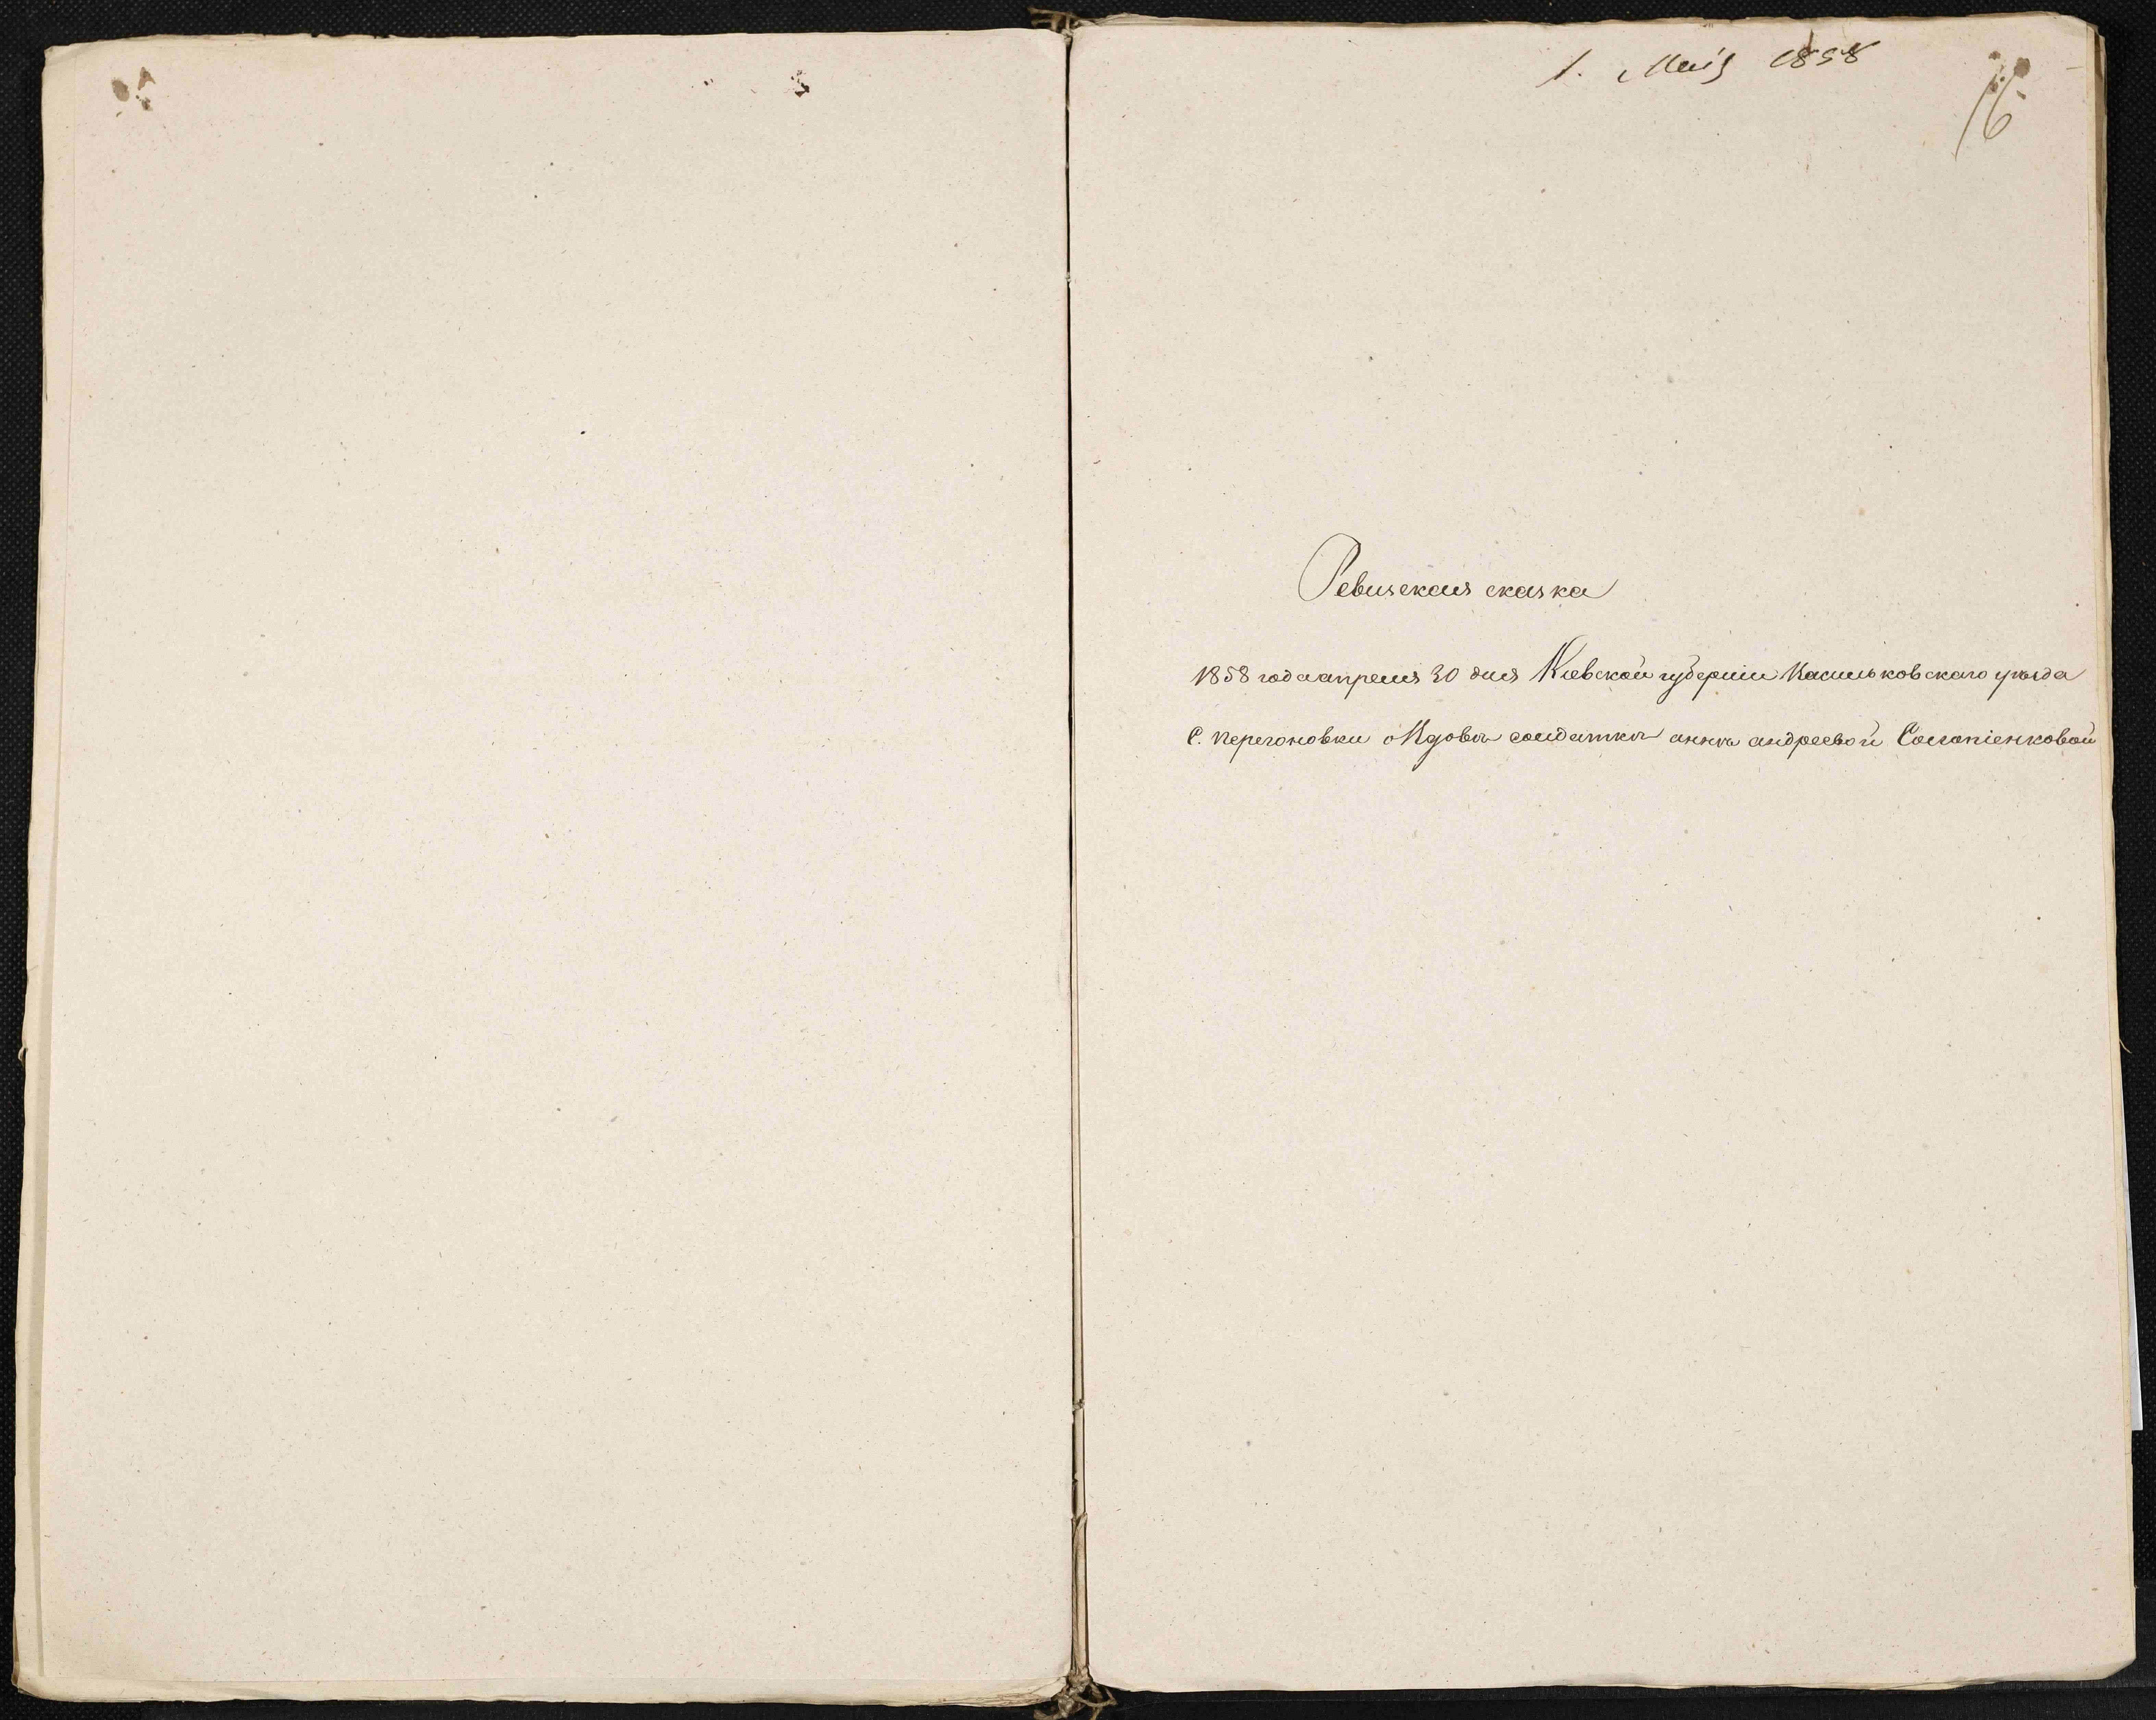 1. Маія 1858
16
Ревизская сказка
1858 года апреля 30 дня Киевской губерніи Васильковского уезда
С. Перегоновки о Вдове солдатке анне андреевой